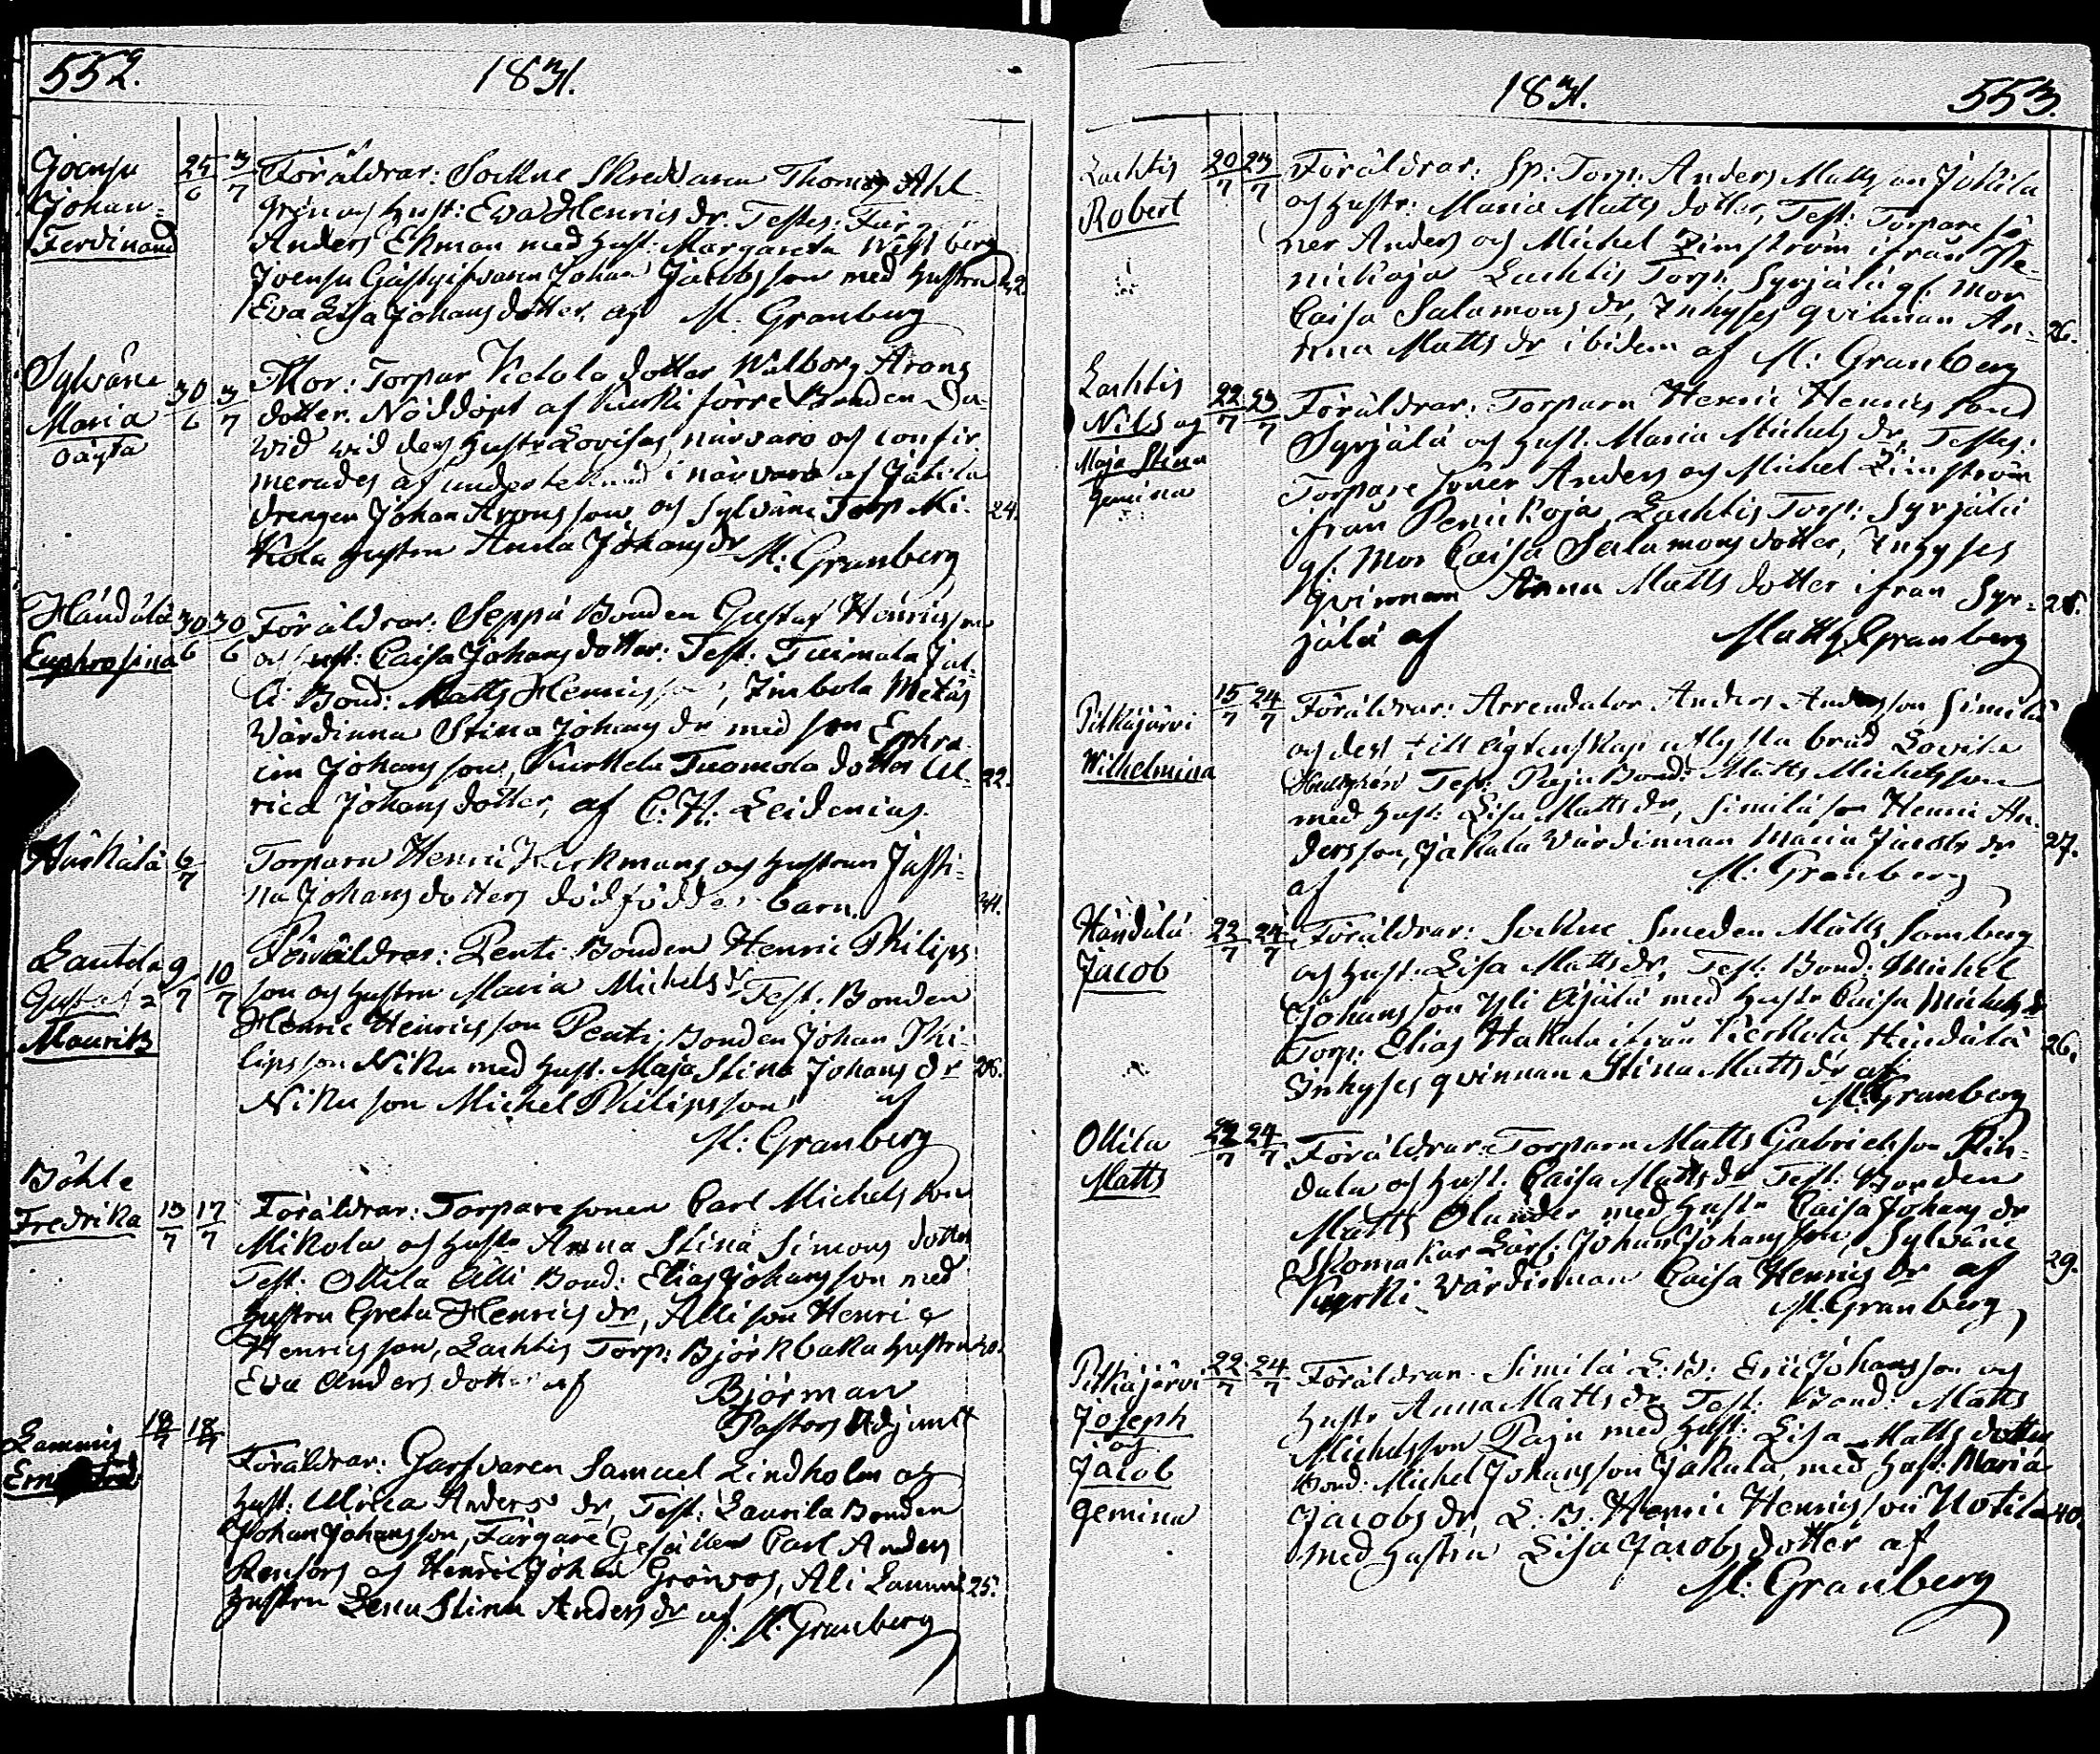 552.
1831.
Joensu
Johan
Ferdinand
25/6 3/7
Föräldrar: Sockne Skreddaren Thomas Ahl-
grén och Hust: Eva Henrics dr. Testes:
Anders Ekman med Hust: Margareta
Joensu Gästgifvaren Johan Jacobsson med Hustru
Eva Lisa Johans dotter, af M. Granberg
Sylväne
Maria
oägta
30/6 3/7
Mor: Torpar dotter Walborg Arons
dotter. Nöddöpt af Kurki förre Bonden Da-
wid wid dess Hustr Lovisas närvaro och confir
merades af undertecknad i närvaro af
drengen Johan Aronsson och Sylväne Torp. Mi-
kola Hustru Anna Johans dr M: Granberg
24.
Händälä
Euphrosina
30/6 30/6
Föräldrar: Seppä Bonden Gustaf Henricsson
och Hust: Caisa Johans dotter: Test: Tuimala
Bond: Matts Henricsson,
Värdinna Stina Johans dr med son Ephra
im Johansson, Kurkela Tuomola dotter Ul-
rica Johans dotter, af C. H. Leidenius.
22.
Härkälä
6/7
Torparn Henric Kirkmans och Hustrun Justi-
na Johans dotters dödfödde barn.
34.
Lautela
Gustaf
Maurits
9/7 10/7
Föräldrar: Penti Bonden Henric Philips
son och Hustru Maria Michels dr Test. Bonden
Henric Henricsson Penti, Bonden Johan Phi-
lipsson Niku med Hust. Maja Stina Johans dr
Niku son Michel Philipsson af
M: Granberg
26.
Böhle
Fredrika
13/7 17/7
Föräldrar: Torparesonen Carl Michelsson
Mikola och Hustr Anna Stina Simons dotter
Test: Ollila Alli Bond: Elias Johansson med
Hustru Greta Henrics dr, Alli son Henric
Henricsson, Lachtis Torp: Björkbaka Hustru
Eva Anders dotter af Björman
Pastors Adjunct
20.
Lammis
18/7 18/7
Föräldrar: Garfvaren Samuel Lindholm och
Hust: Ulrica Anders dr, Test: Laurila Bonden
Johan Johansson, Färgare Gesällen Carl Anders
Renfors och Henric Johan, Ali Lammi
Hustru Lena Stina Anders dr af. M. Granberg
25.
1831.
553.
Lachtis
Robert
20/7 23/7
Föräldrar: Sp: Torp: Anders Mattsson Jokila
och Hustr: Maria Matts dotter, Test: Torpare sö
ner Anders och Michel Limström ifrån Pe-
nickoja Lachtis Torp: Syrjälä gl: Mor
Caisa Salomons dr, Inhyses qvinnan An-
na Matts dr ibidem af M: Granberg
26.
Lachtis
Nils och
Maja Stina
gemina
22/7 23/7
Föräldrar: Torparn Henric Henricsson
Syrjälä och Hust. Maria Michels dr, Testes:
Torpare söner Anders och Michel Limström
ifrån Penickoja, Lachtis Torp: Syrjälä
gl: Mor Caisa Salamons dotter, Inhyses
qvinnan Anna Matts dotter ifrån Syr-
jälä af Matts Granberg
28.
Pitkäjärvi
Wilhelmina
15/7 24/7
Föräldrar: Arrendator Anders Andersson Similä
och dess till ägtenskap utlysta brud Lovisa
Test: Paju Bond: Matts Michelsson
med Hust: Lisa Matts dr, Similä son Henric An-
dersson, Jakala Värdinnan Maria Jacobs dr
af M: Granberg
27.
Händälä
Jacob
22/7 24/7
Föräldrar: Sockne Smeden Matts Somberg
och Hust: Lisa Matts dr, Test: Bond: Michel
Johansson Yli Äijälä med Hustr Caisa Michels dr
Torp: Elias Hakala ifrån Händälä
Inhyses qvinnan Stina Matts dr af
M: Granberg
26.
Ollila
Matts
22/7 24/7
Föräldrar: Torparn Matts Gabrielsson Rin-
dala och Hust. Caisa Matts dr Test: Bonden
Matts Olander med Hustr Caisa Johans dr
Skomakar Lärl: Johan Johansson, Sylväne
Kurki Värdinnan Caisa Henrics dr af
M. Granberg
29.
Pitkäjärvi
Joseph
och
Jacob
gemina
22/7 24/7
Föräldrar Similä L: B: Eric Johansson och
Hustr Anna Matts dr Test: Bond: Matts
Michelsson Paju med Hust: Lisa Matts dotter
Bond: Michel Johansson Jakala, med Hust: Maria
Jacobs dr L. B. Henric Henricsson
med Hustru Lisa Jacobs dotter af
M: Granberg
40.